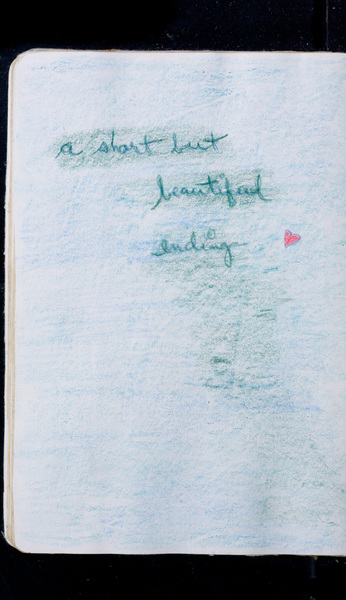 a short but
beautiful
ending